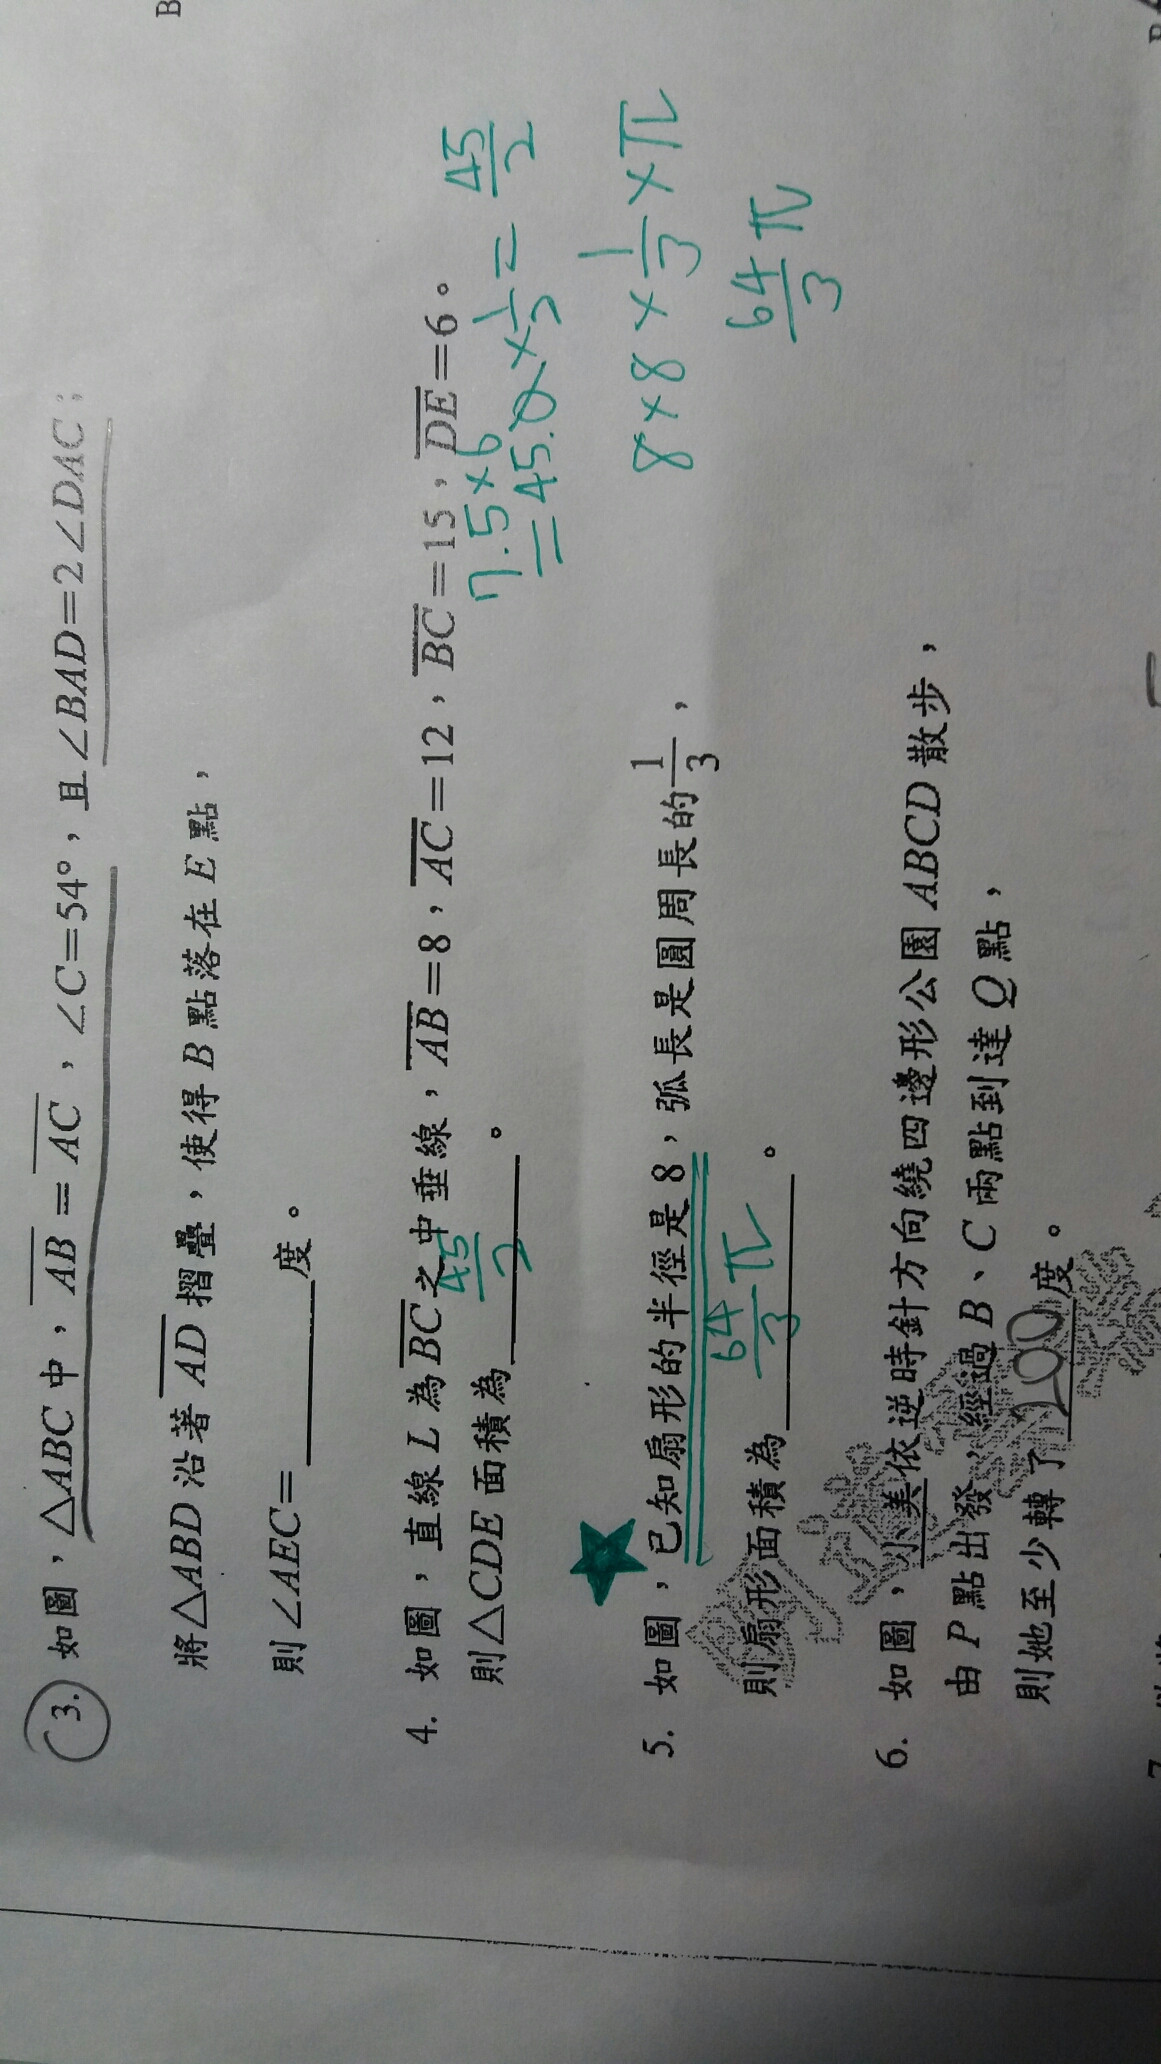 3. 如圖，△ABC中，AB＝AC，∠C＝54°，且∠BAD＝2∠DAC；
將△ABD沿著AD摺疊，使得B點落在E點，
則∠AEC＝度。
4. 如圖，直線L為BC之中垂線，AB＝8，AC＝12，BC＝15，DE＝6。
7.5×6
=45.0×1/2=45/2
則△CDE面積為45/2。
5. 如圖，已知扇形的半徑是8，弧長是圓周長的1/3，
8×8×1/3×π
64/3π
則扇形面積為64/3π。
6. 如圖，小美依逆時針方向繞四邊形公園ABCD散步，
由P點出發，經過B、C兩點到達Q點，
則她至少轉了200度。